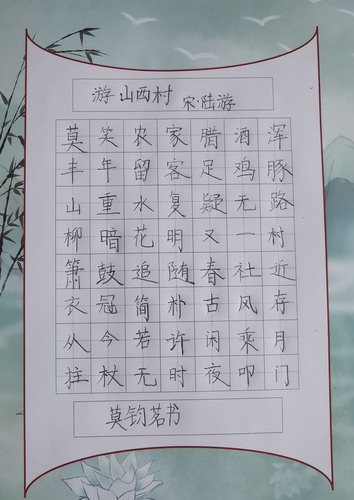 游山西村 宋·陆游
莫笑农家腊酒浑
丰年留客足鸡豚
山重水复疑无路
柳暗花明又一村
箫鼓追随春社近
衣冠简朴古风存
从今若许闲乘月
拄杖无时夜叩门
莫钧茗书